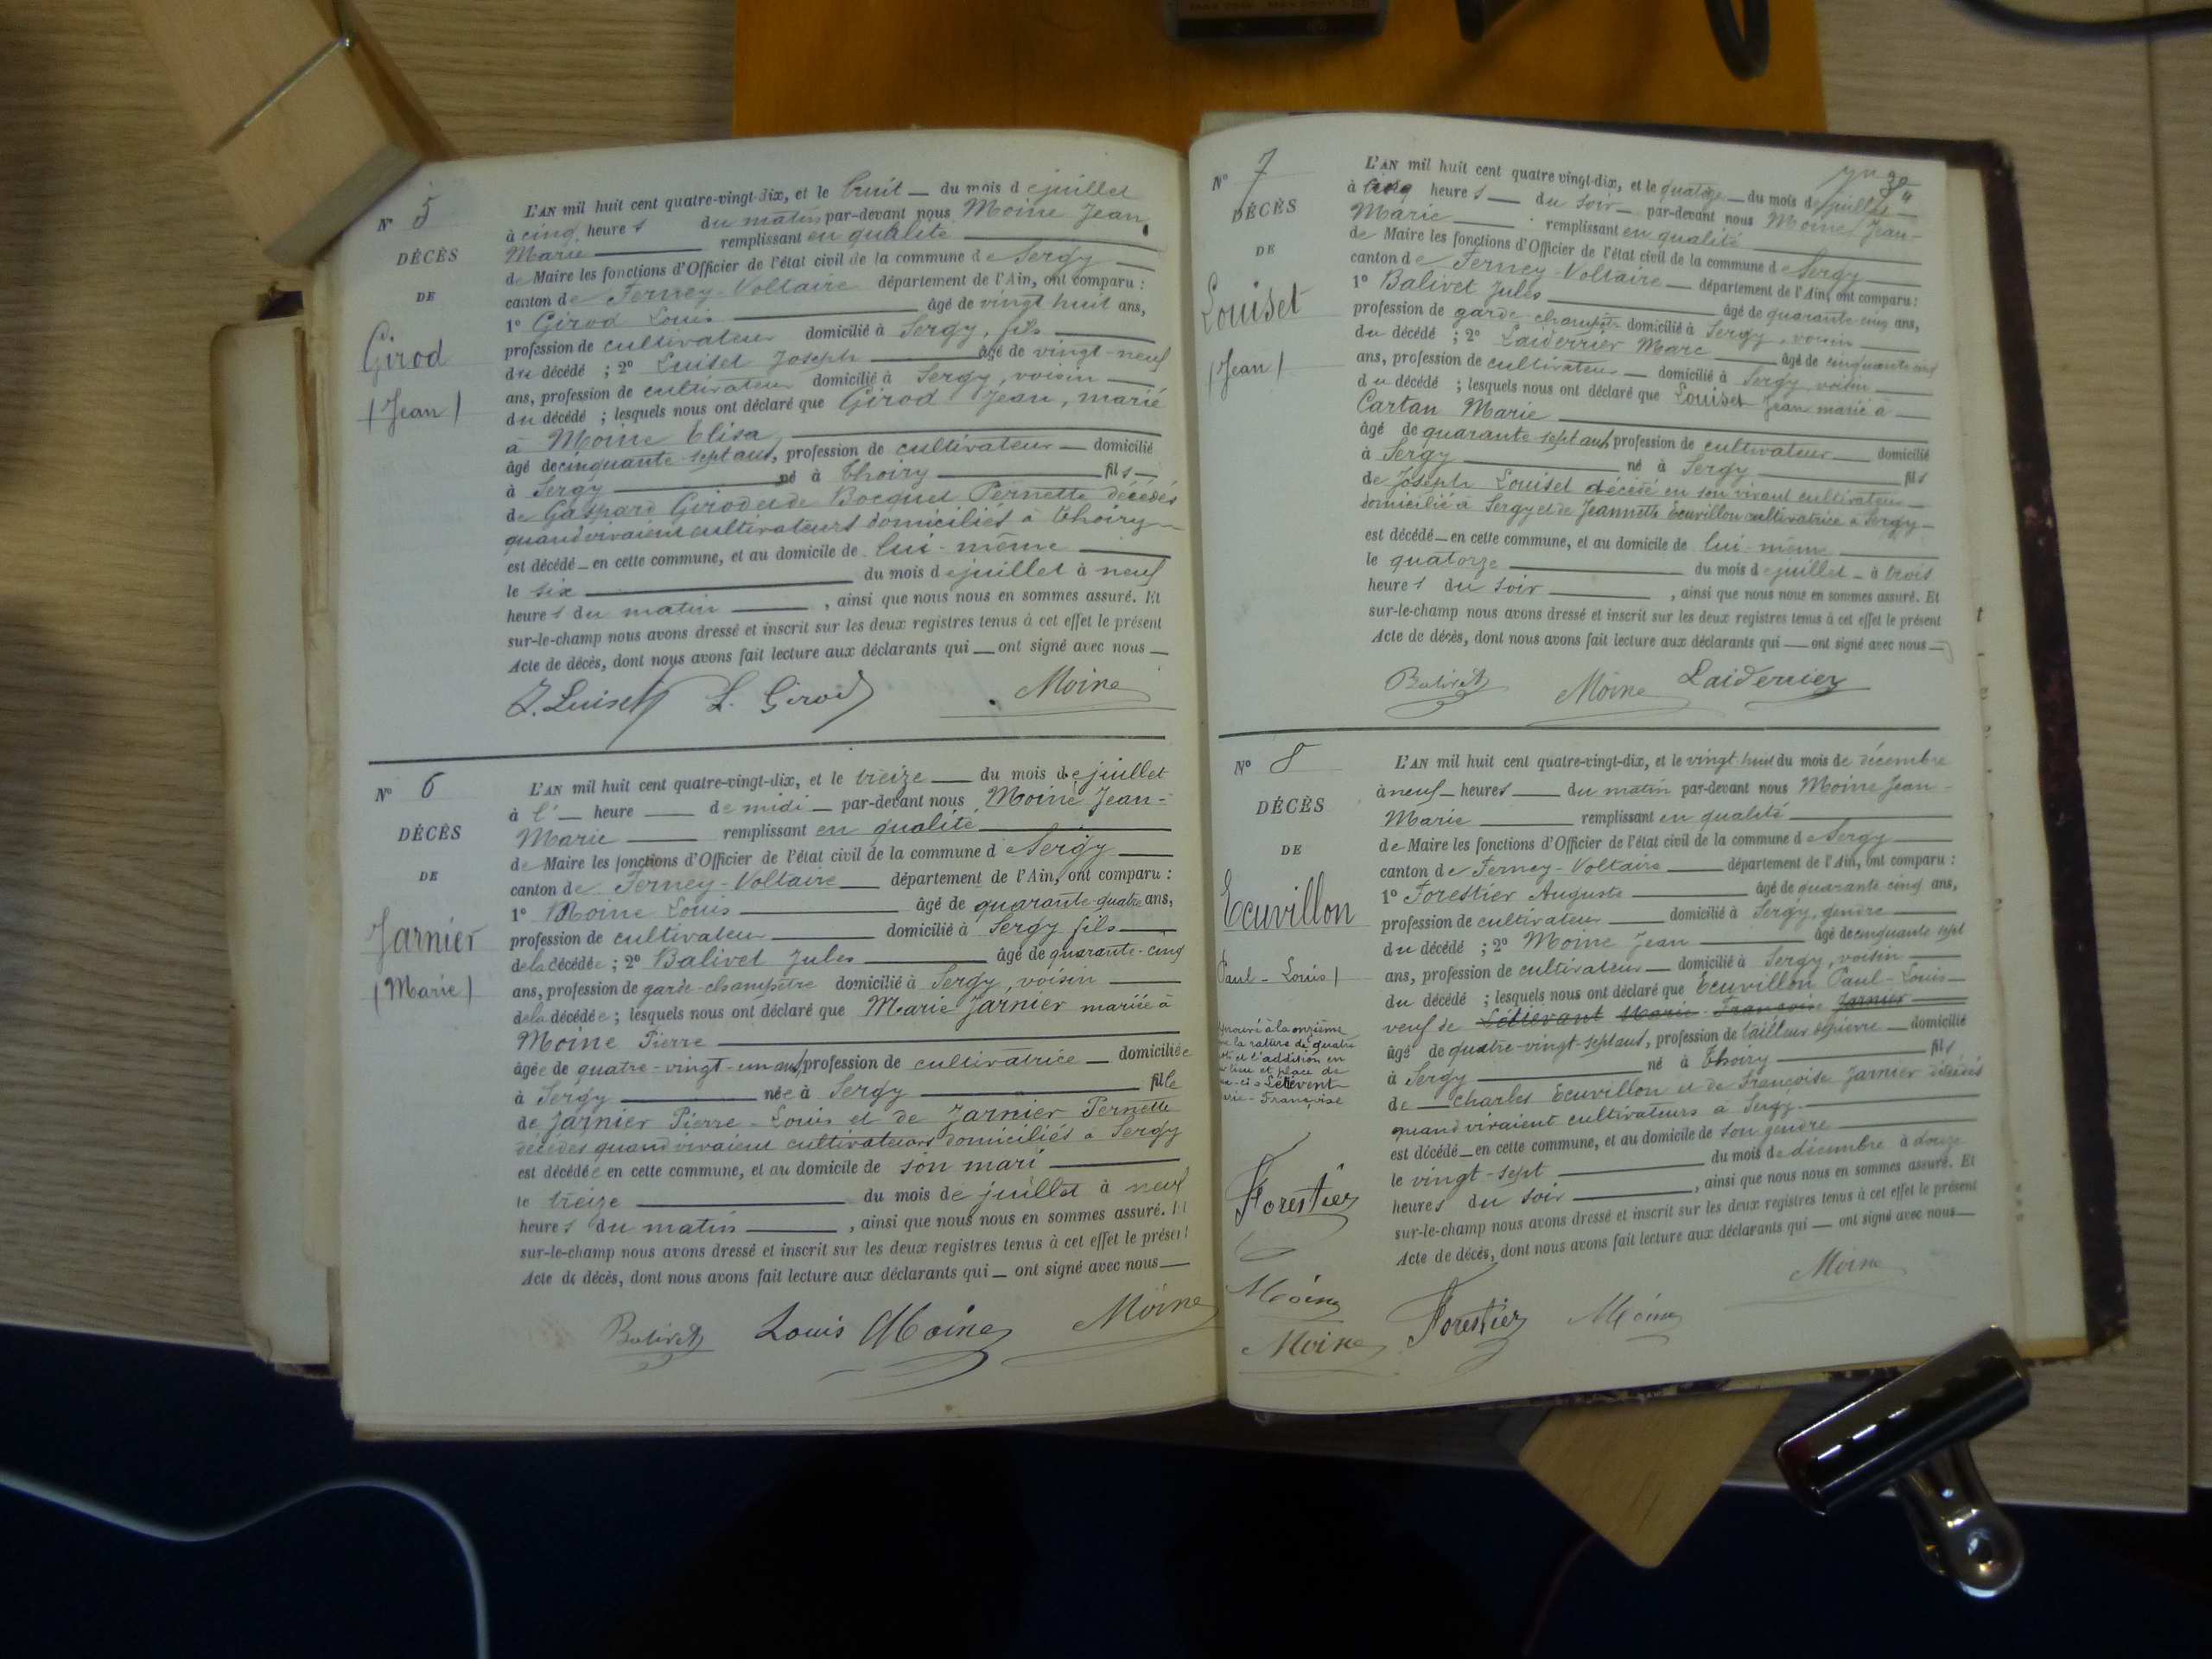 N° 5
DÉCÈS
DE
Girod
(Jean)
L'AN mil huit cent quatre-vingt-dix, et le huit du mois de juillet
à cinq heures du matin par-devant nous Moine Jean
Marie remplissant en qualité
de Maire les fonctions d'Officier de l'état civil de la commune de Sergy
canton de Ferney-Voltaire département de l'Ain, ont comparu :
1° Girod Louis âgé de vingt huit ans,
profession de cultivateur domicilié à Sergy, fils
du décédé ; 2° Luiset Joseph âgé de vingt-neuf
ans, profession de cultivateur domicilié à Sergy, voisin
du décédé ; lesquels nous ont déclaré que Girod Jean, marié
à Moine Elisa,
âgé de cinquante-sept ans, profession de cultivateur domicilié
à Sergy né à Thoiry fils
de Gaspard Girod et de Bocquet Pernette décédés
quand vivaient cultivateurs domiciliés à Thoiry
est décédé en cette commune, et au domicile de lui-même
le six du mois de juillet à neuf
heures du matin , ainsi que nous nous en sommes assuré. Et
sur-le-champ nous avons dressé et inscrit sur les deux registres tenus à cet effet le présent
Acte de décès, dont nous avons fait lecture aux déclarants qui ont signé avec nous
J. Luiset L. Girod Moine
N° 6
DÉCÈS
DE
Jarnier
(Marie)
L'AN mil huit cent quatre-vingt-dix, et le treize du mois de juillet
à l' heure de midi par-devant nous Moine Jean-
Marie remplissant en qualité
de Maire les fonctions d'Officier de l'état civil de la commune de Sergy
canton de Ferney-Voltaire département de l'Ain, ont comparu :
1° Moine Louis âgé de quarante-quatre ans,
profession de cultivateur domicilié à Sergy fils
de la décédée ; 2° Balivet Jules âgé de quarante-cinq
ans, profession de garde-champêtre domicilié à Sergy, voisin
de la décédée ; lesquels nous ont déclaré que Marie Jarnier mariée à
Moine Pierre
âgée de quatre-vingt-un ans, profession de cultivatrice domiciliée
à Sergy née à Sergy fille
de Jarnier Pierre-Louis et de Jarnier Pernette
décédés quand vivaient cultivateurs domiciliés à Sergy
est décédée en cette commune, et au domicile de son mari
le treize du mois de juillet à neuf
heures du matin , ainsi que nous nous en sommes assuré. Et
sur-le-champ nous avons dressé et inscrit sur les deux registres tenus à cet effet le présent
Acte de décès, dont nous avons fait lecture aux déclarants qui ont signé avec nous
Balivet Louis Moine Moine
N° 7
DÉCÈS
DE
Louiset
(Jean)
L'AN mil huit cent quatre-vingt-dix, et le quatorze du mois de juillet
à cinq heures du soir par-devant nous Moine Jean-
Marie remplissant en qualité
de Maire les fonctions d'Officier de l'état civil de la commune de Sergy
canton de Ferney-Voltaire département de l'Ain, ont comparu :
1° Balivet Jules âgé de quarante-cinq ans,
profession de garde-champêtre domicilié à Sergy, voisin
du décédé ; 2° Laiderrier Marc âgé de cinquante cinq
ans, profession de cultivateur domicilié à Sergy voisin
du décédé ; lesquels nous ont déclaré que Louiset Jean marié à
Cartan Marie
âgé de quarante-sept ans, profession de cultivateur domicilié
à Sergy né à Sergy fils
de Joseph Louiset décédé en son vivant cultivateur
domicilié à Sergy et de Jeannette Ecuvillon cultivatrice à Sergy
est décédé en cette commune, et au domicile de lui-même
le quatorze du mois de juillet à trois
heures du soir , ainsi que nous nous en sommes assuré. Et
sur-le-champ nous avons dressé et inscrit sur les deux registres tenus à cet effet le présent
Acte de décès, dont nous avons fait lecture aux déclarants qui ont signé avec nous
Balivet Moine Laiderrier
N° 8
DÉCÈS
DE
Ecuvillon
Paul-Louis)
à la onzième
la rature de quatre
et l'addition en
lieu et place de
Létievent
Françoise
Forestier
Moine
Moine
L'AN mil huit cent quatre-vingt-dix, et le vingt-huit du mois de décembre
à neuf heures du matin par-devant nous Moine Jean-
Marie remplissant en qualité
de Maire les fonctions d'Officier de l'état civil de la commune de Sergy
canton de Ferney-Voltaire département de l'Ain, ont comparu :
1° Forestier Auguste âgé de quarante cinq ans,
profession de cultivateur domicilié à Sergy, gendre
du décédé ; 2° Moine Jean âgé de cinquante sept
ans, profession de cultivateur domicilié à Sergy, voisin
du décédé ; lesquels nous ont déclaré que Ecuvillon Paul-Louis
veuf de Létievant Marie Françoise Jarnier
âgé de quatre-vingt-sept ans, profession de tailleur de pierre domicilié
à Sergy né à Thoiry fils
de Charles Ecuvillon et de Françoise Jarnier décédés
quand vivaient cultivateurs à Sergy
est décédé en cette commune, et au domicile de son gendre
le vingt-sept du mois de décembre à douze
heures du soir , ainsi que nous nous en sommes assuré. Et
sur-le-champ nous avons dressé et inscrit sur les deux registres tenus à cet effet le présent
Acte de décès, dont nous avons fait lecture aux déclarants qui ont signé avec nous
Forestier Moine Moine